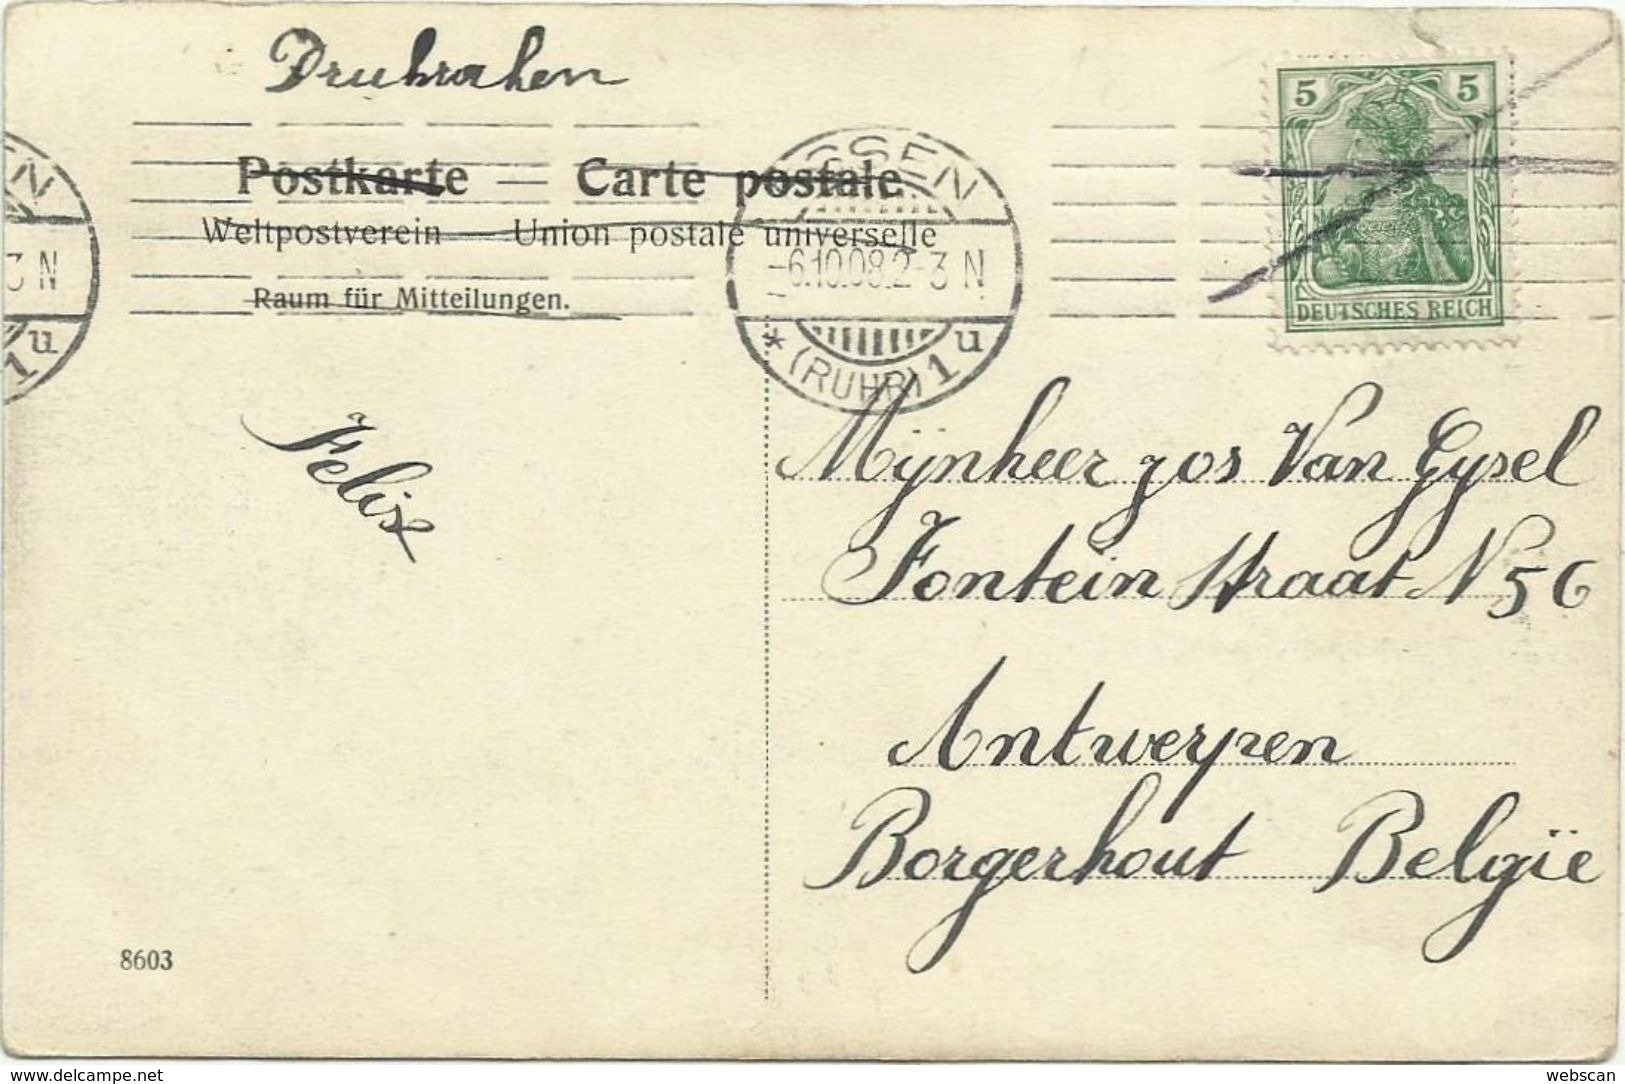 Drukraken
5 5
Postkarte — Carte postale
Weltpostverein — Union postale universelle
Raum für Mitteilungen.
ESSEN
-6.10.08.2-3 N
* (RUHR) 1 u
EN
3 N
1 u
DEUTSCHES REICH
Felix
Mijnheer Jos Van Gysel
Fontein Straat N 56
Antwerpen
Borgerhout Belgïe
8603
www.delcampe.net
webscan